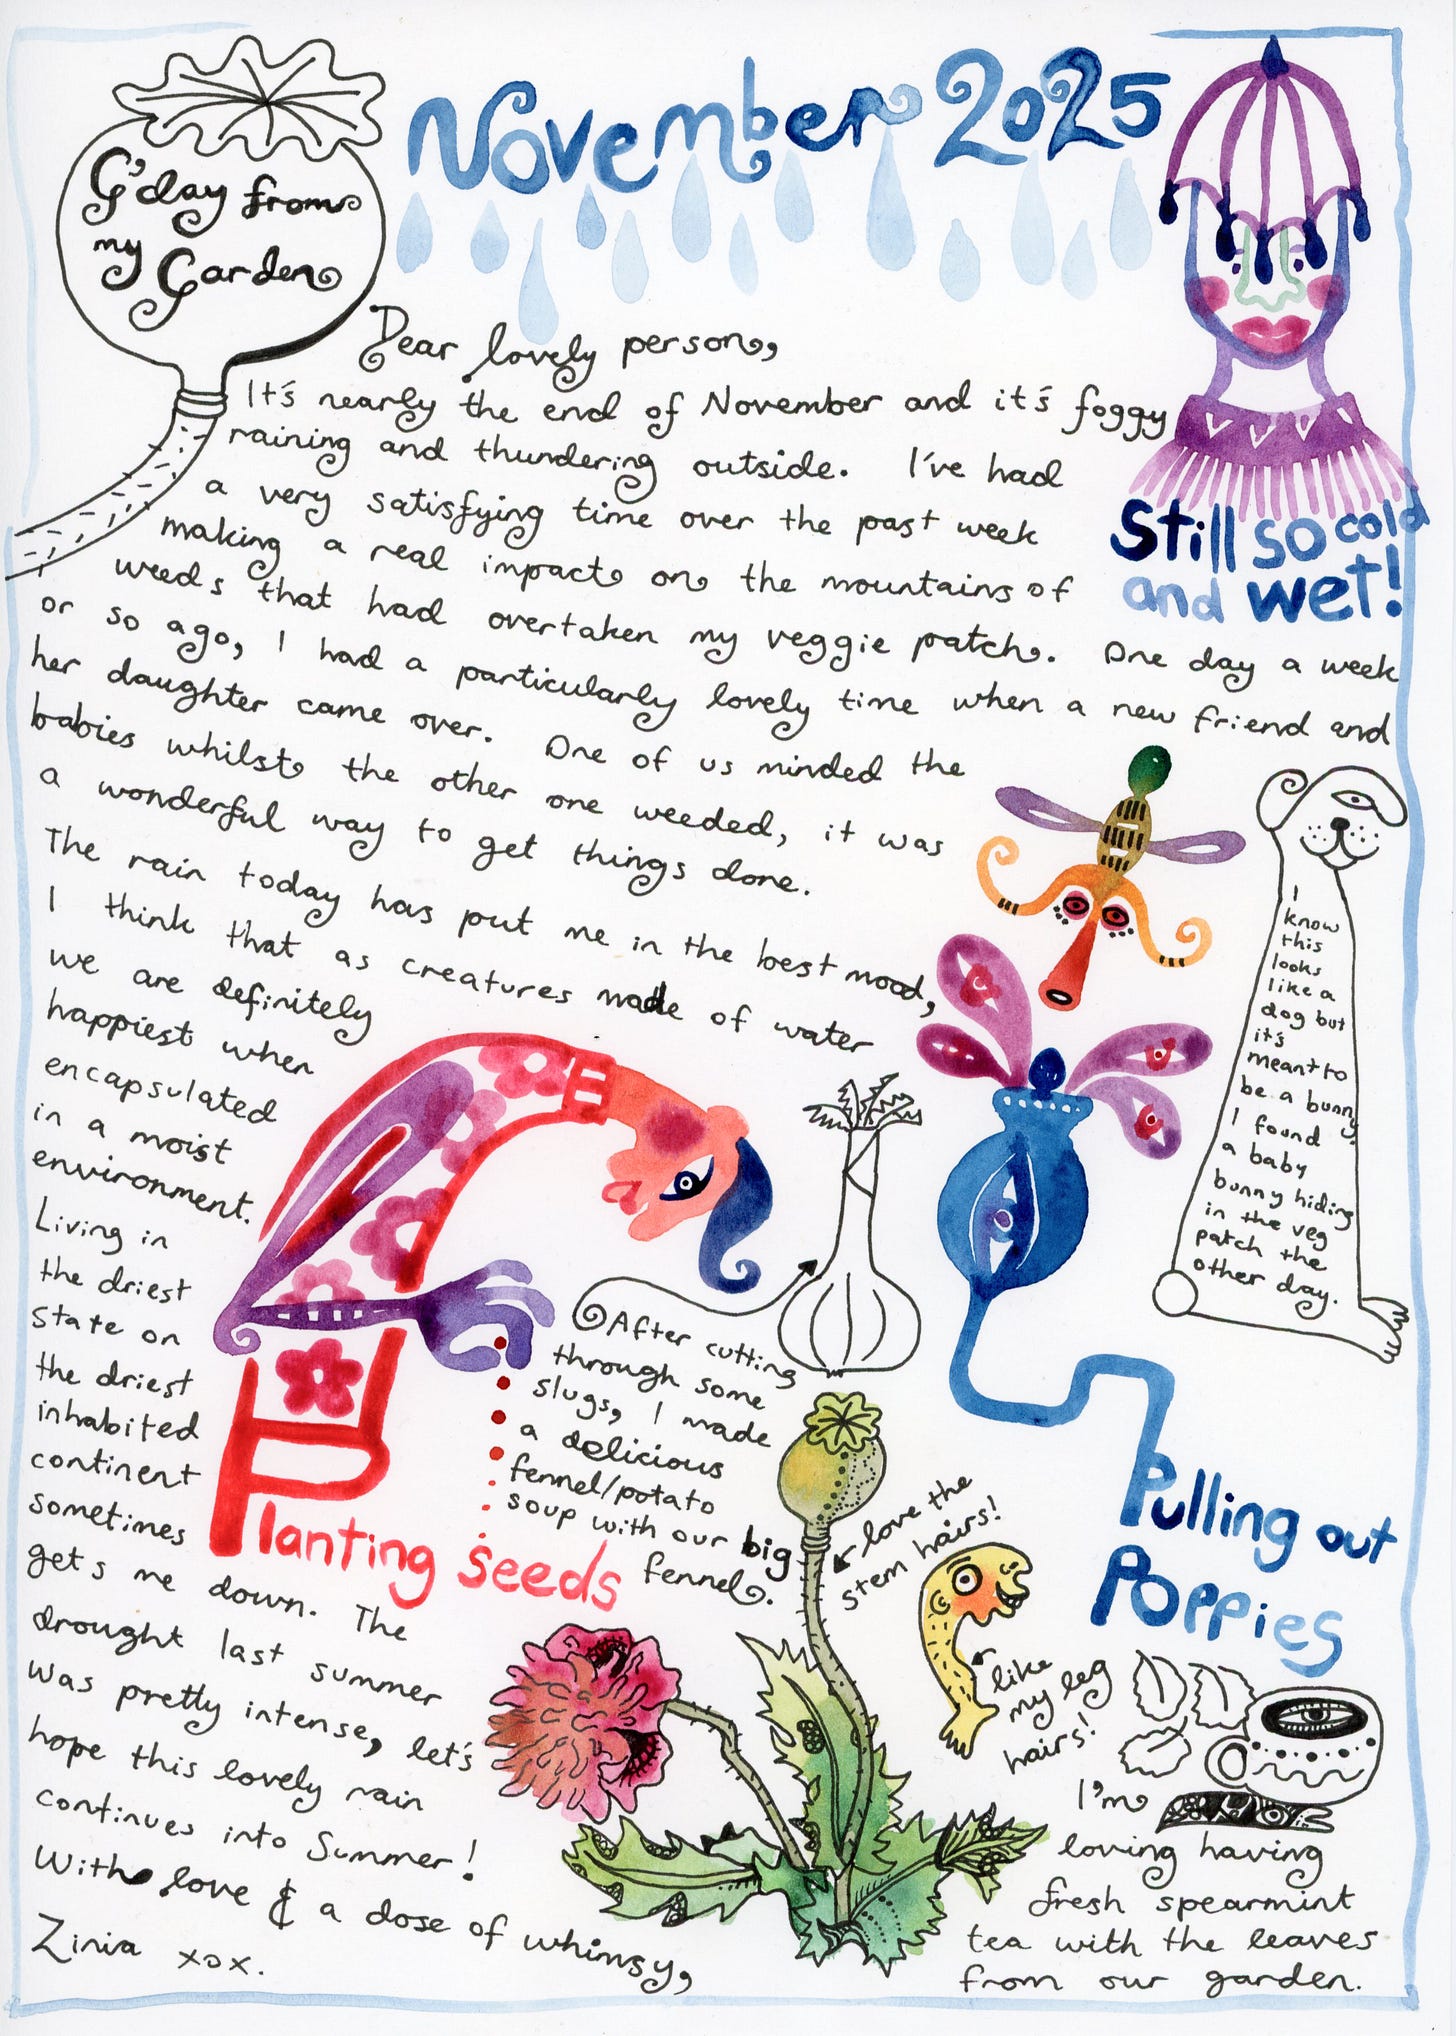 G'day from
my Garden
November 2025
Dear lovely person,
It's nearly the end of November and it's foggy
raining and thundering outside. I've had
a very satisfying time over the past week
making a real impact on the mountains of
weeds that had overtaken my veggie patch. One day a week
or so ago, I had a particularly lovely time when a new friend and
her daughter came over. One of us minded the
babies whilst the other one weeded, it was
a wonderful way to get things done.
The rain today has put me in the best mood,
I think that as creatures made of water
we are definitely
happiest when
encapsulated
in a moist
environment.
Living in
the driest
State on
the driest
inhabited
continent
sometimes
gets me down. The
drought last summer
was pretty intense, let's
hope this lovely rain
continues into Summer!
With love & a dose of whimsy,
Zinia xox.
Still so cold
and wet!
I
know
this
looks
like a
dog but
it's
meant to
be a bunny
I found
a baby
bunny hiding
in the veg
patch the
other day.
Planting seeds
After cutting
through some
slugs, I made
a delicious
fennel/potato
soup with our big
fennel.
love the
stem hairs!
like
my leg
hairs!
Pulling out
Poppies
I'm
loving having
fresh spearmint
tea with the leaves
from our garden.